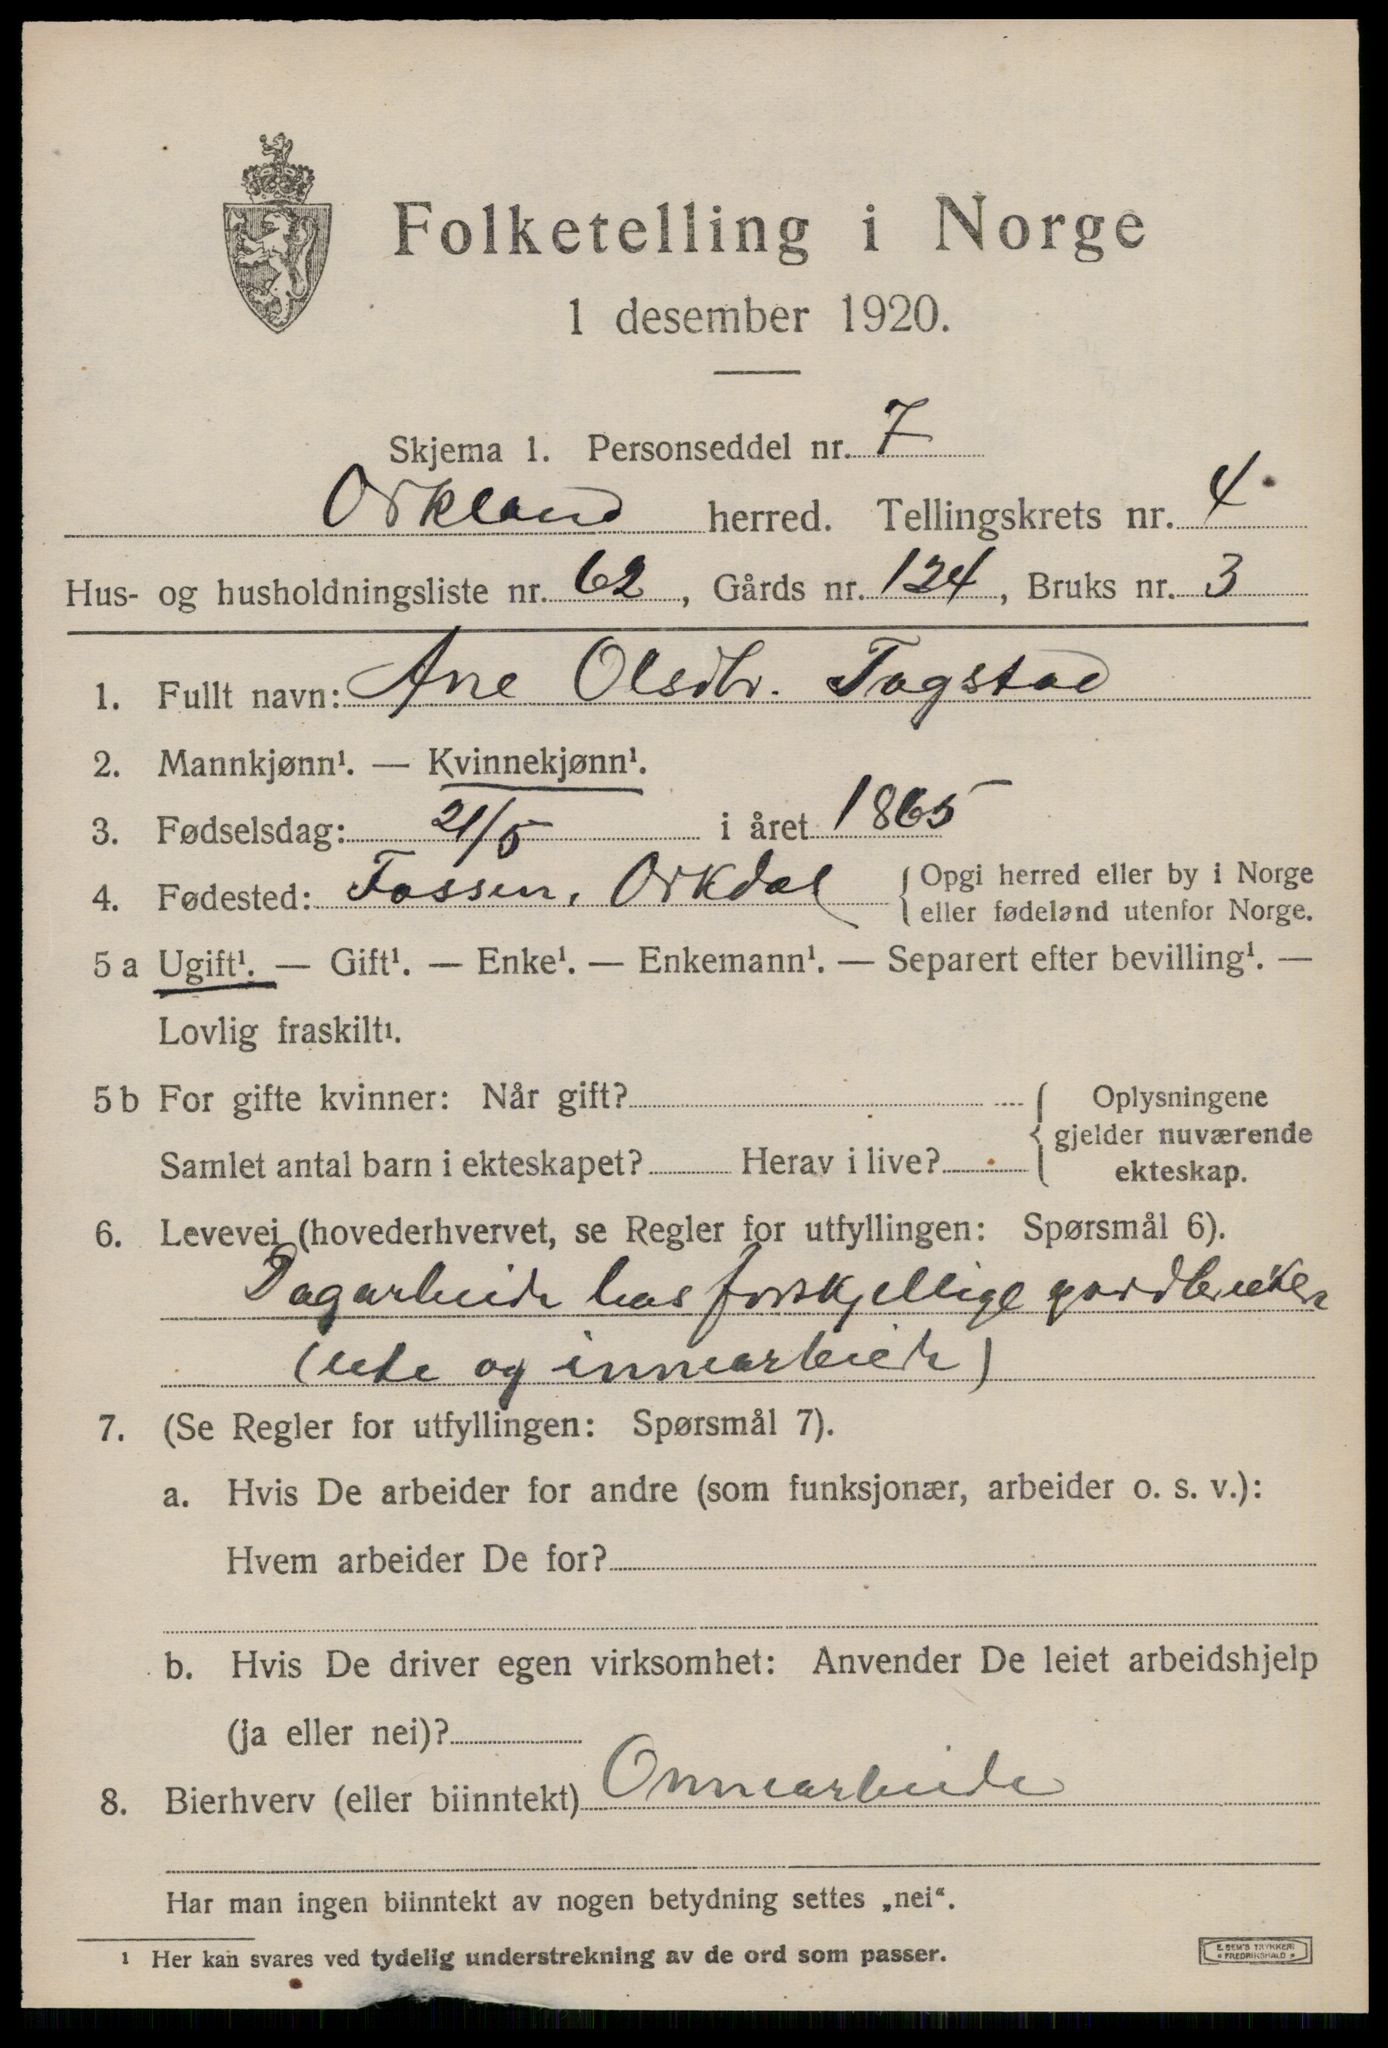 Folketelling i Norge
1 desember 1920.
Skjema 1. Personseddel nr. 7
Orkland herred. Tellingskrets nr. 4
Hus- og husholdningsliste nr. 62, Gårds nr. 124, Bruks nr. 3
1. Fullt navn: Ane Olsdtr. Fagstad
2. Mannkjønn¹. — Kvinnekjønn¹.
3. Fødselsdag: 21/5 i året 1865
4. Fødested: Fossen, Orkdal { Opgi herred eller by i Norge
eller fødeland utenfor Norge.
5 a Ugift¹. — Gift¹. — Enke¹. — Enkemann¹. — Separert efter bevilling¹. —
Lovlig fraskilt¹.
5 b For gifte kvinner: Når gift? { Oplysningene
gjelder nuværende
Samlet antal barn i ekteskapet? Herav i live?
ekteskap.
6. Levevei (hovederhvervet, se Regler for utfyllingen: Spørsmål 6).
Dagarbeide hos forskjellige gardbrukere
(ute og innearbeide)
7. (Se Regler for utfyllingen: Spørsmål 7).
a. Hvis De arbeider for andre (som funksjonær, arbeider o. s. v.):
Hvem arbeider De for?
b. Hvis De driver egen virksomhet: Anvender De leiet arbeidshjelp
(ja eller nei)?
8. Bierhverv (eller biinntekt) Onnearbeide
Har man ingen biinntekt av nogen betydning settes „nei“.
¹ Her kan svares ved tydelig understrekning av de ord som passer.
E. SEM'S TRYKKERI
* FREDRIKSHALD *